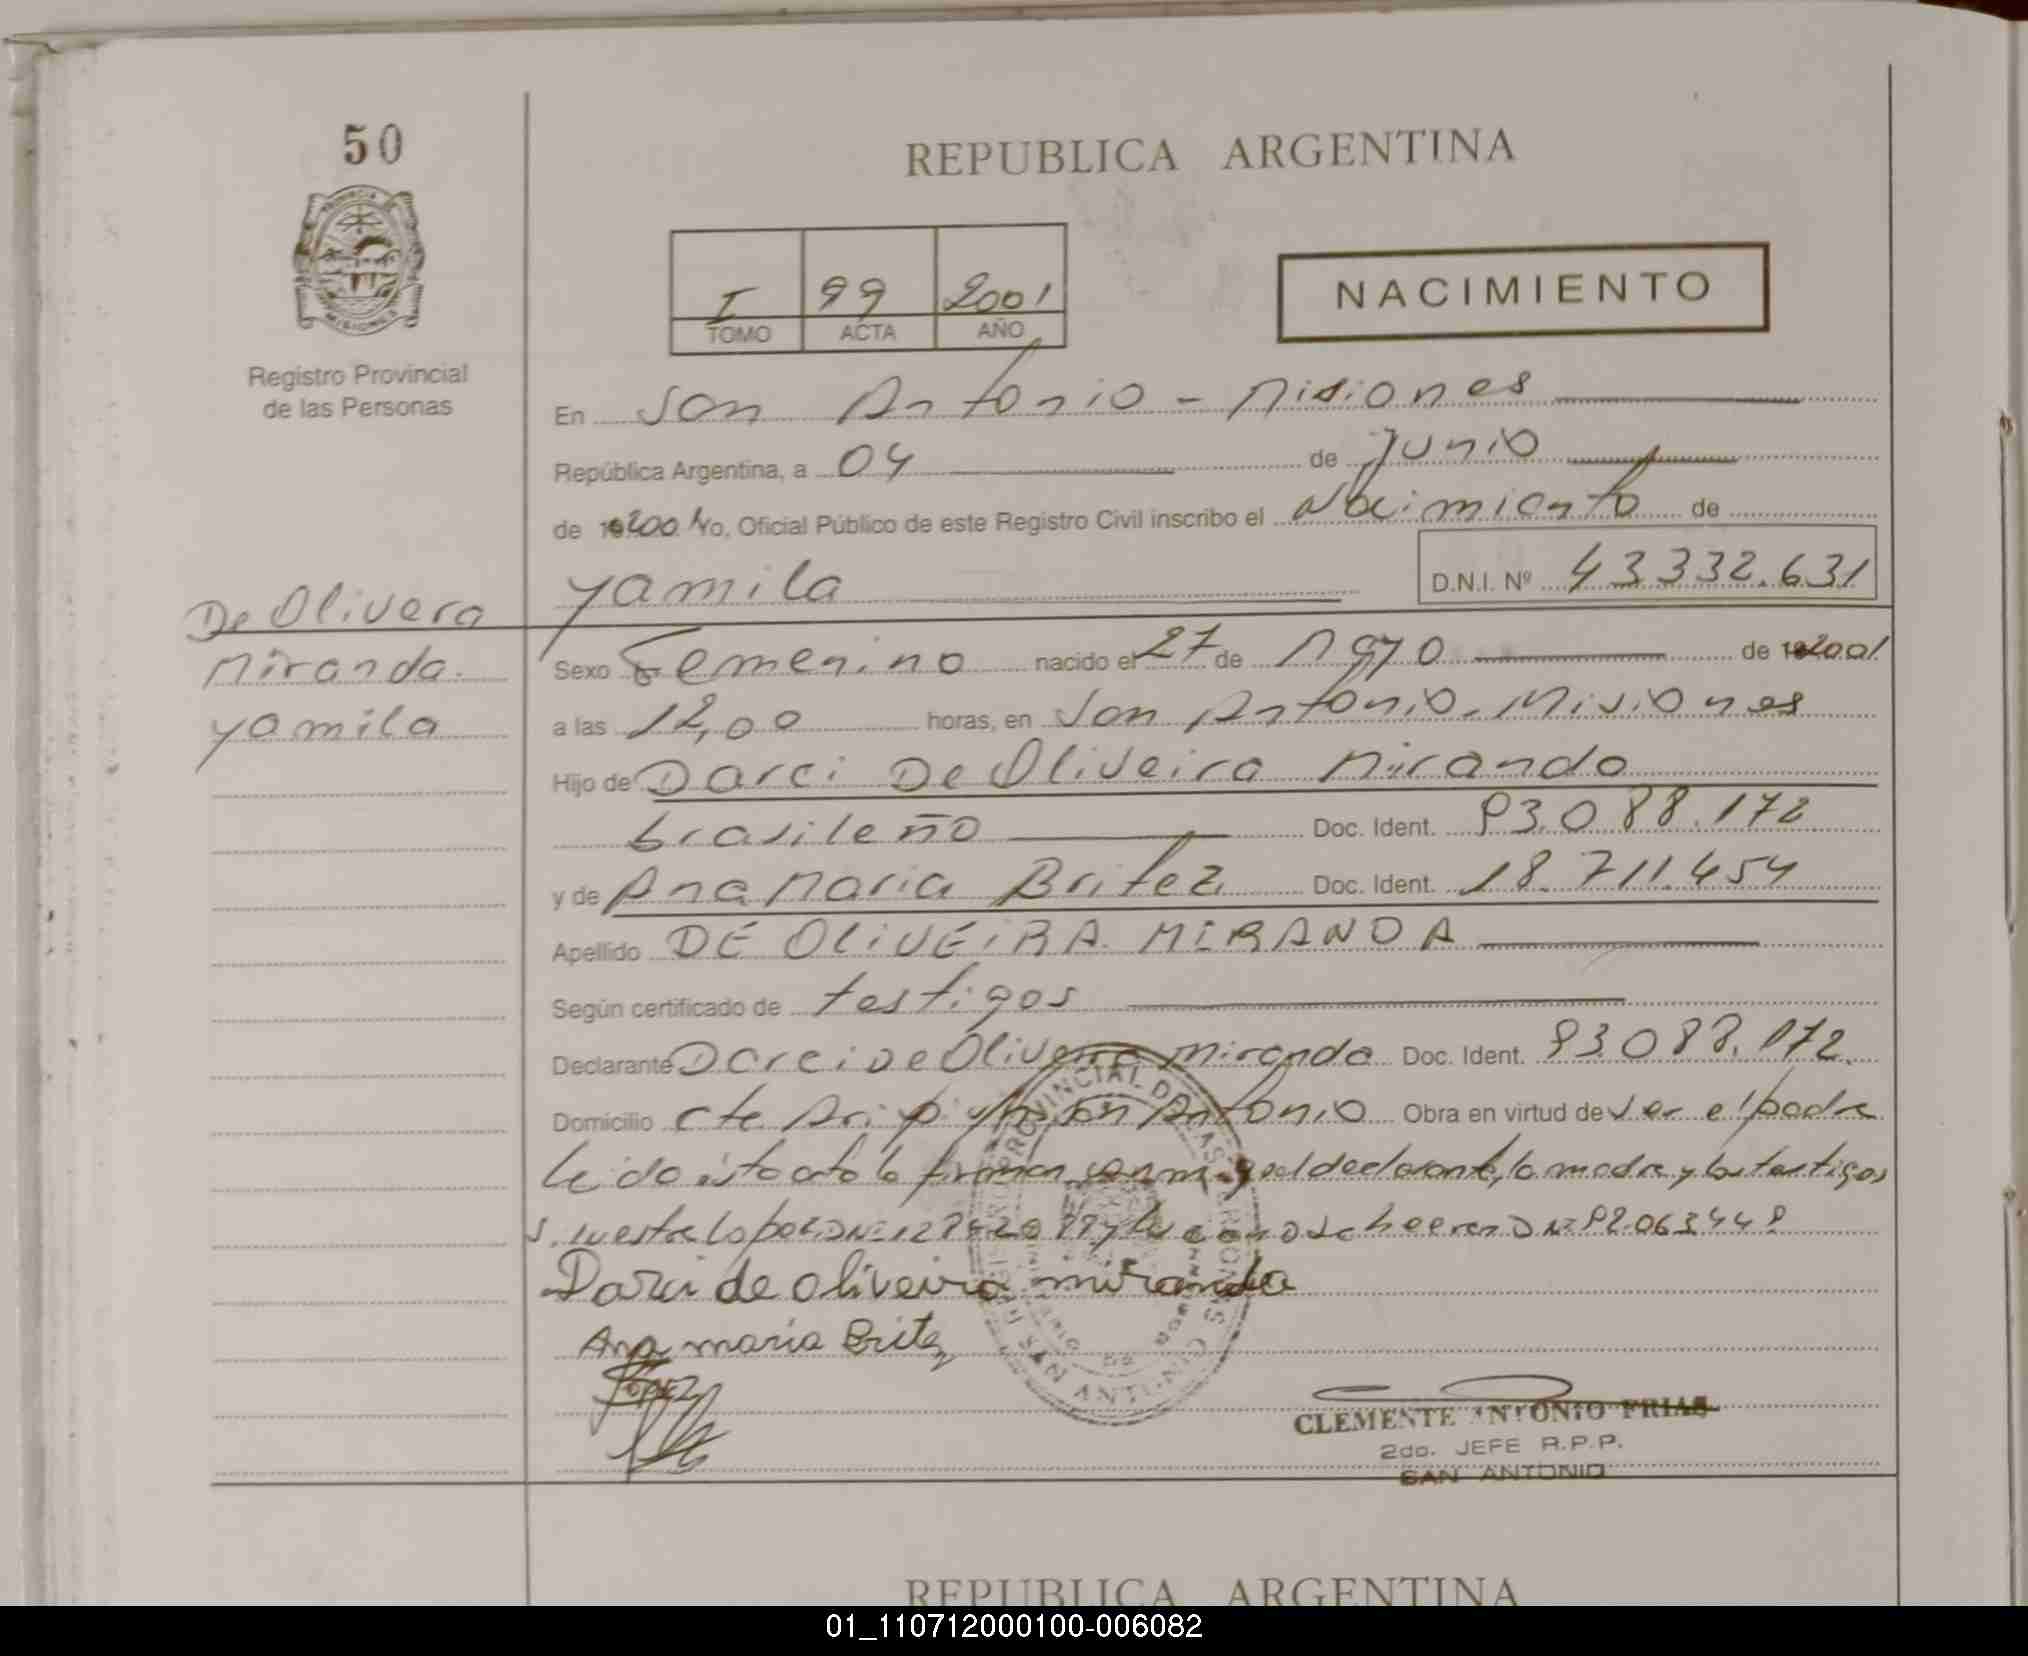 50
REPUBLICA ARGENTINA
I 99 2001
TOMO ACTA AÑO
NACIMIENTO
PROVINCIA DE MISIONES
Registro Provincial
de las Personas
En San Antonio - Misiones
República Argentina, a 04 de Junio
de 2001 Yo, Oficial Público de este Registro Civil inscribo el Nacimiento de
Yamila D.N.I. Nº 43332.631
De Olivera
Miranda
Yamila
Sexo Femenino nacido el 27 de Mayo de 2001
a las 12,00 horas, en San Antonio. Misiones
Hijo de Darci De Oliveira Miranda
brasileño Doc. Ident. 93.088.172
y de Ana Maria Britez Doc. Ident. 18.711.454
Apellido DE OLIVEIRA MIRANDA
Según certificado de testigos
Declarante Darci De Oliveira Miranda Doc. Ident. 93.088.172.
Domicilio San Antonio Obra en virtud de ser el padre
Leido esta acta la firman conmigo el declarante, la madre y los testigos
Darci de oliveira miranda
Ana maria Britez
CLEMENTE ANTONIO FRIAS
2do. JEFE R.P.P.
SAN ANTONIO
REPUBLICA ARGENTINA
01_110712000100-006082